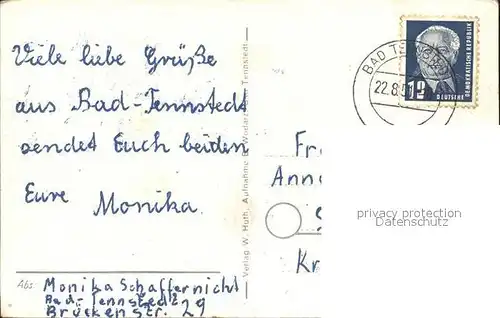 Viele liebe Grüße
aus Bad-Tennstedt
sendet Euch beiden
Eure
Monika
Abs:
Monika Schaffernicht
Bad-Tennstedt
Brückenstr. 29
Verlag W. Huth, Aufnahme B. Tennstedt
BAD TENNSTEDT
22.8.
12
DEUTSCHE
DEMOKRATISCHE REPUBLIK
Fr
Ann
Kr
privacy protection
Datenschutz